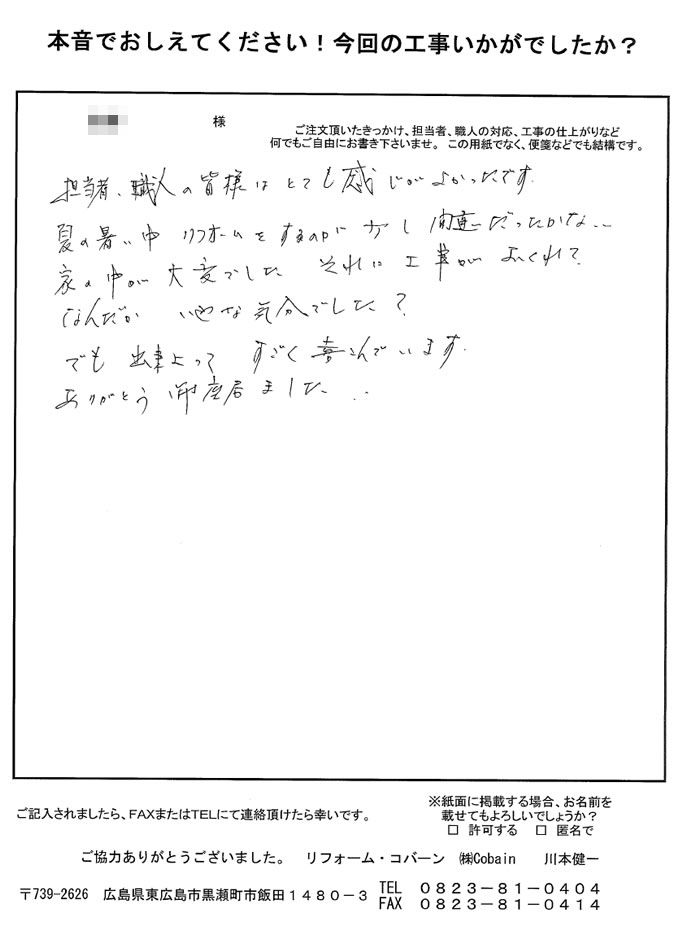 本音でおしえてください！今回の工事いかがでしたか？
様
ご注文頂いたきっかけ、担当者、職人の対応、工事の仕上がりなど
何でもご自由にお書き下さいませ。この用紙でなく、便箋などでも結構です。
担当者、職人の皆様はとても感じがよかったです。
夏の暑い中 リフォームをするのが少し間違だったかな...
家の中が大変でした それに工事がおくれて
なんだか いやな気分でした？
でも 出来上って すごく喜こんでいます。
ありがとう御座居ました...
ご記入されましたら、FAXまたはTELにて連絡頂けたら幸いです。
※紙面に掲載する場合、お名前を
載せてもよろしいでしょうか？
□ 許可する □ 匿名で
ご協力ありがとうございました。 リフォーム・コバーン ㈱Cobain 川本健一
〒739-2626 広島県東広島市黒瀬町市飯田１４８０－３
TEL ０８２３－８１－０４０４
FAX ０８２３－８１－０４１４